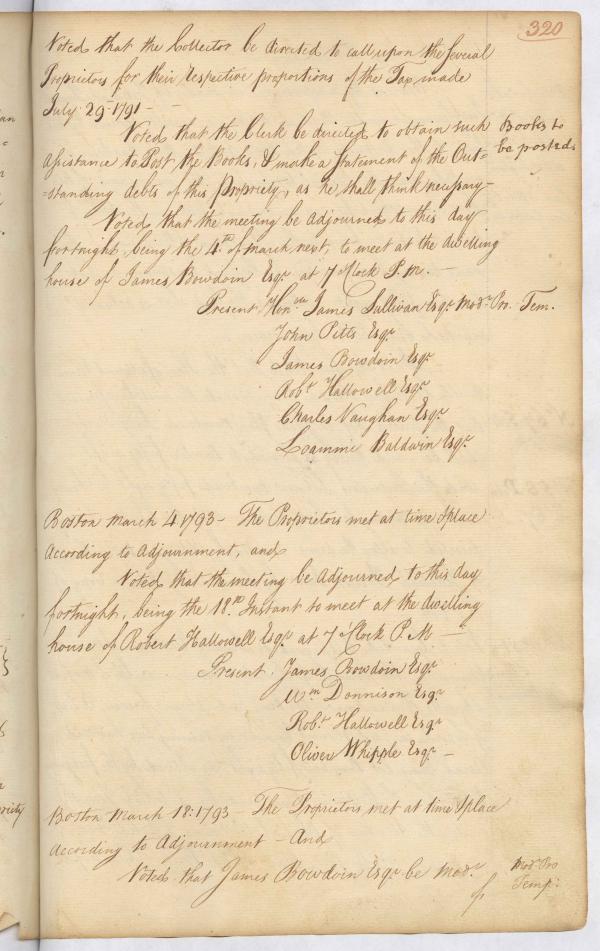 320
Voted that the Collector be directed to call upon the several
Proprietors for their respective proportions of the Tax made
July 29-1791 - -
Voted that the Clerk be directed to obtain such
Books to
be posted
assistance to Post the Books, & make a Statement of the Out=
=standing debts of this Propriety, as he shall think necessary -
Voted that the meeting be adjourned to this day
fortnight, being the 4th. of march next, to meet at the dwelling
house of James Bowdoin Esqr. at 7 oClock P.M. -
Present, Honble James Sullivan Esqr. Modr. Pro. Tem.
John Pitts Esqr
James Bowdoin Esqr
Robt Hallowell Esqr
Charles Vaughan Esqr
Loammi Baldwin Esqr.
Boston march 4.1793 - The Proprietors met at time & place
according to Adjournment, and
Voted that the meeting be Adjourned to this day
fortnight, being the 18th. Instant to meet at the dwelling
house of Robert Hallowell Esqr. at 7 oClock P.M -
Present. James Bowdoin Esqr
Wm Donnison Esqr.
Robt. Hallowell Esqr
Oliver Whipple Esqr. -
Boston March 18:1793 - The Proprietors met at time & place
according to Adjournment - And
Voted that James Bowdoin Esqr. be Modr.
Modr Pro
Temp: